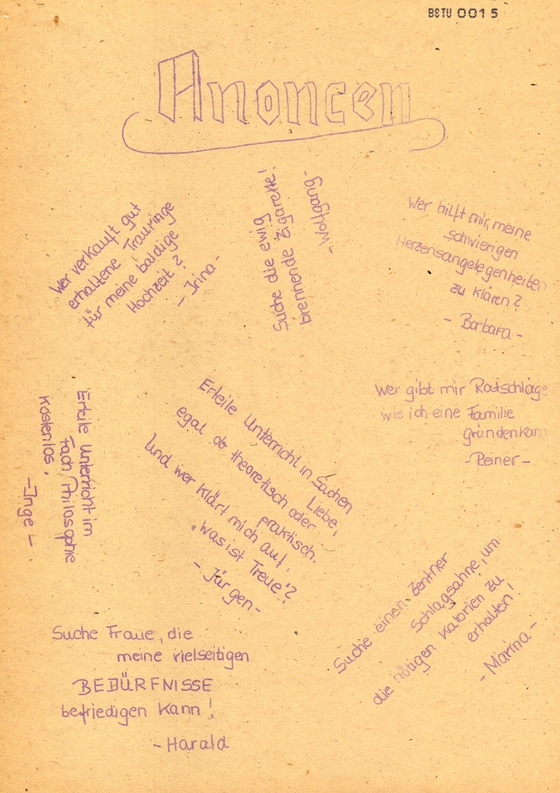 BStU 0015
Anoncen
Wer verkauft gut
erhaltene Trauringe
für meine baldige
Hochzeit?
- Irina -
Suche die ewig
brennende Zigarette!
- Wolfgang -
Wer hilft mir, meine
schwierigen
Herzensangelegenheiten
zu klären?
- Barbara -
Erteile Unterricht im
Fach Philosophie
kostenlos,
- Inge -
Erteile Unterricht in Suchen
Liebe,
egal ob theoretisch oder
praktisch.
Und wer klärt mich auf,
was ist Treue"?
- Jürgen -
Wer gibt mir Ratschläge
wie ich eine Familie
gründen kann
- Reiner -
Suche Fraue, die
meine vielseitigen
BEDÜRFNISSE
befriedigen kann!
- Harald
Suche einen Zentner
Schlagsahne, um
die nötigen Kalorien zu
erhalten!
- Marina -